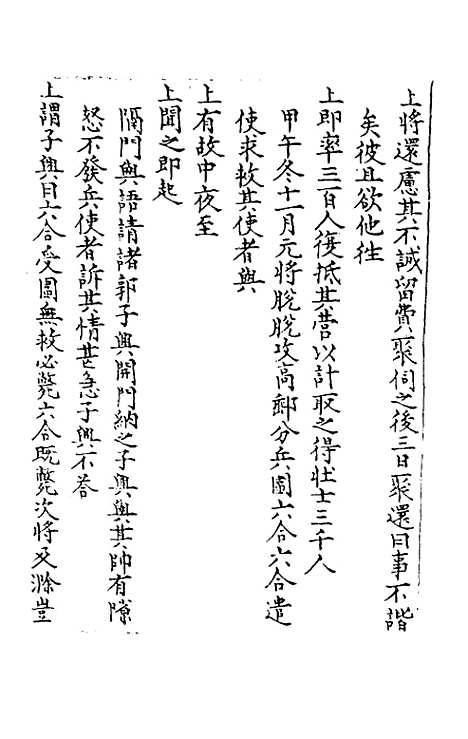 上將還慮其不誠留費聚伺之後三日聚還曰事不諧
矣彼且欲他徃
上即率三百人復抵其營以計取之得壯士三千人
甲午冬十一月元將脫脫攻高郵分兵圍六合六合遣
使求救其使者與
上有故中夜至
上聞之即起
隔門與語請諸郭子興開門納之子興與其帥有隙
怒不發兵使者訴其情甚急子興不答
上謂子興曰六合受圍無救必斃六合旣斃次將及滁豈